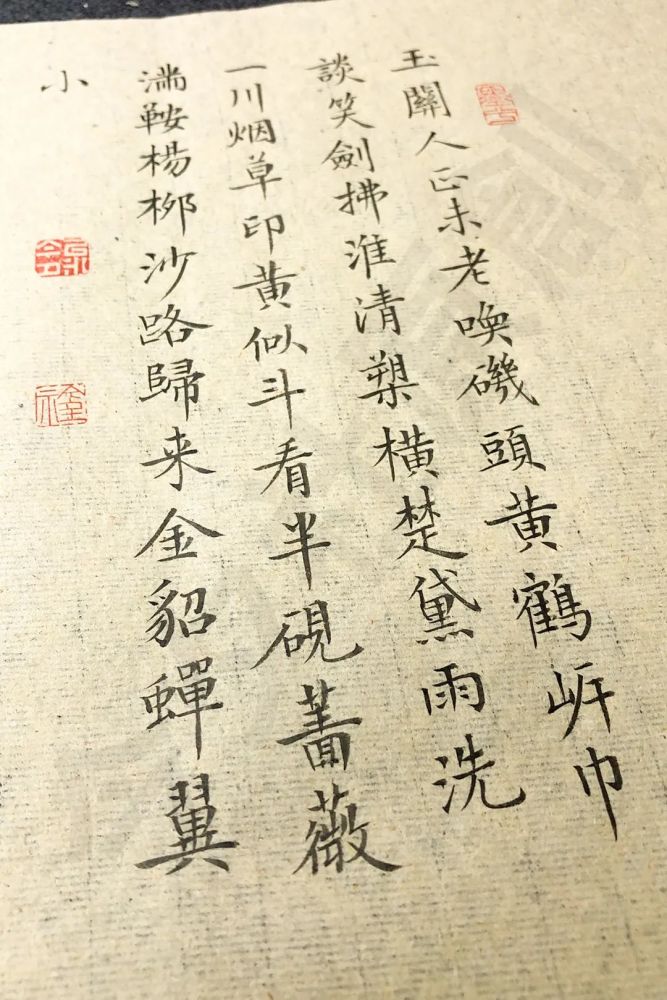 玉關人正未老喚磯頭黄鶴岸巾
談笑劍拂淮清槊横楚黛雨洗
一川烟草印黄似斗看半硯薔薇
滿鞍楊柳沙路歸来金貂蟬翼
小